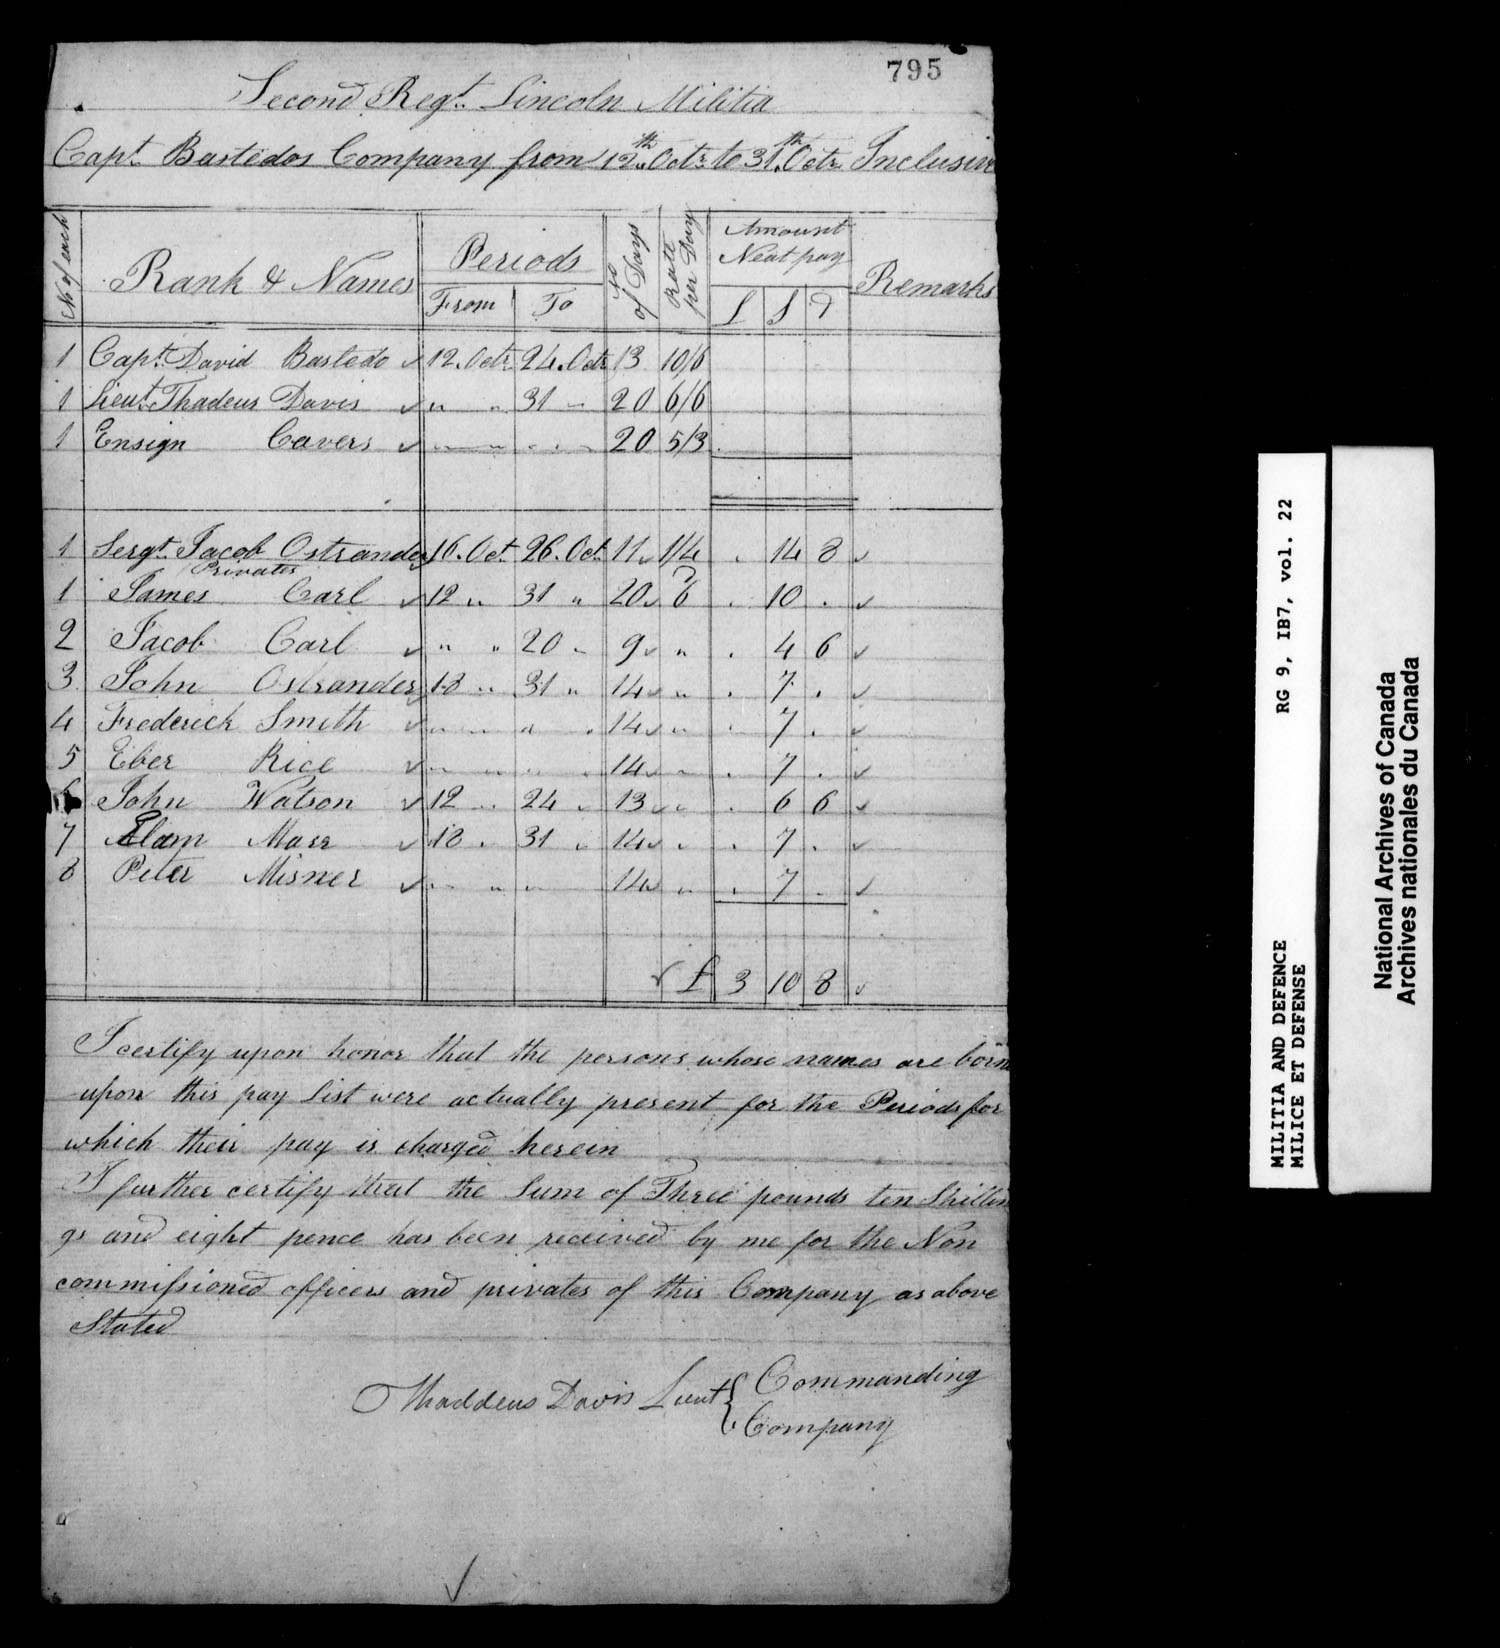 795
Second Regt. Lincoln Militia
Capt. Bastedos Company from 12th Octr. to 31th Octr. Inclusive
No of each | Rank & Names | Periods From To | No of Days | Rate per Day | Amount Neat pay £ S D | Remarks
1 Capt. David Bastedo ✓ 12. Octr. 24. Octr 13 10/6
1 Lieut. Thadeus Davis ✓ " " 31 " 20 6/6
1 Ensign Cavers ✓ " " " " 20 5/3
1 Sergt. Jacob Ostrander 16. Oct. 26. Oct. 11 ✓ 1/4 . 14 8 ✓
Privates
1 James Carl ✓ 12 " 31 " 20 ✓ 6 D . 10 . ✓
2 Jacob Carl ✓ " " 20 " 9 ✓ " . 4 6 ✓
3 John Ostrander 18 " 31 " 14 ✓ " . 7 . ✓
4 Frederick Smith ✓ " " " " 14 ✓ " . 7 . ✓
5 Eber Rice ✓ " " " " 14 ✓ " . 7 . ✓
6 John Watson ✓ 12 " 24 " 13 ✓ " . 6 6 ✓
7 Elam Marr ✓ 18 " 31 " 14 ✓ " . 7 . ✓
8 Peter Misner ✓ " " " 14 ✓ " . 7 . ✓
✓ £ 3 10 8 ✓
I certify upon honor that the persons whose names are born
upon this pay List were actually present for the Periods for
which their pay is charged herein
I further certify that the Sum of Three pounds ten Shillin
gs and eight pence has been received by me for the Non
commissioned officers and privates of this Company as above
Stated
Thaddeus Davis Lieut { Commanding
Company
MILITIA AND DEFENCE RG 9, IB7, vol. 22
MILICE ET DEFENSE
National Archives of Canada
Archives nationales du Canada